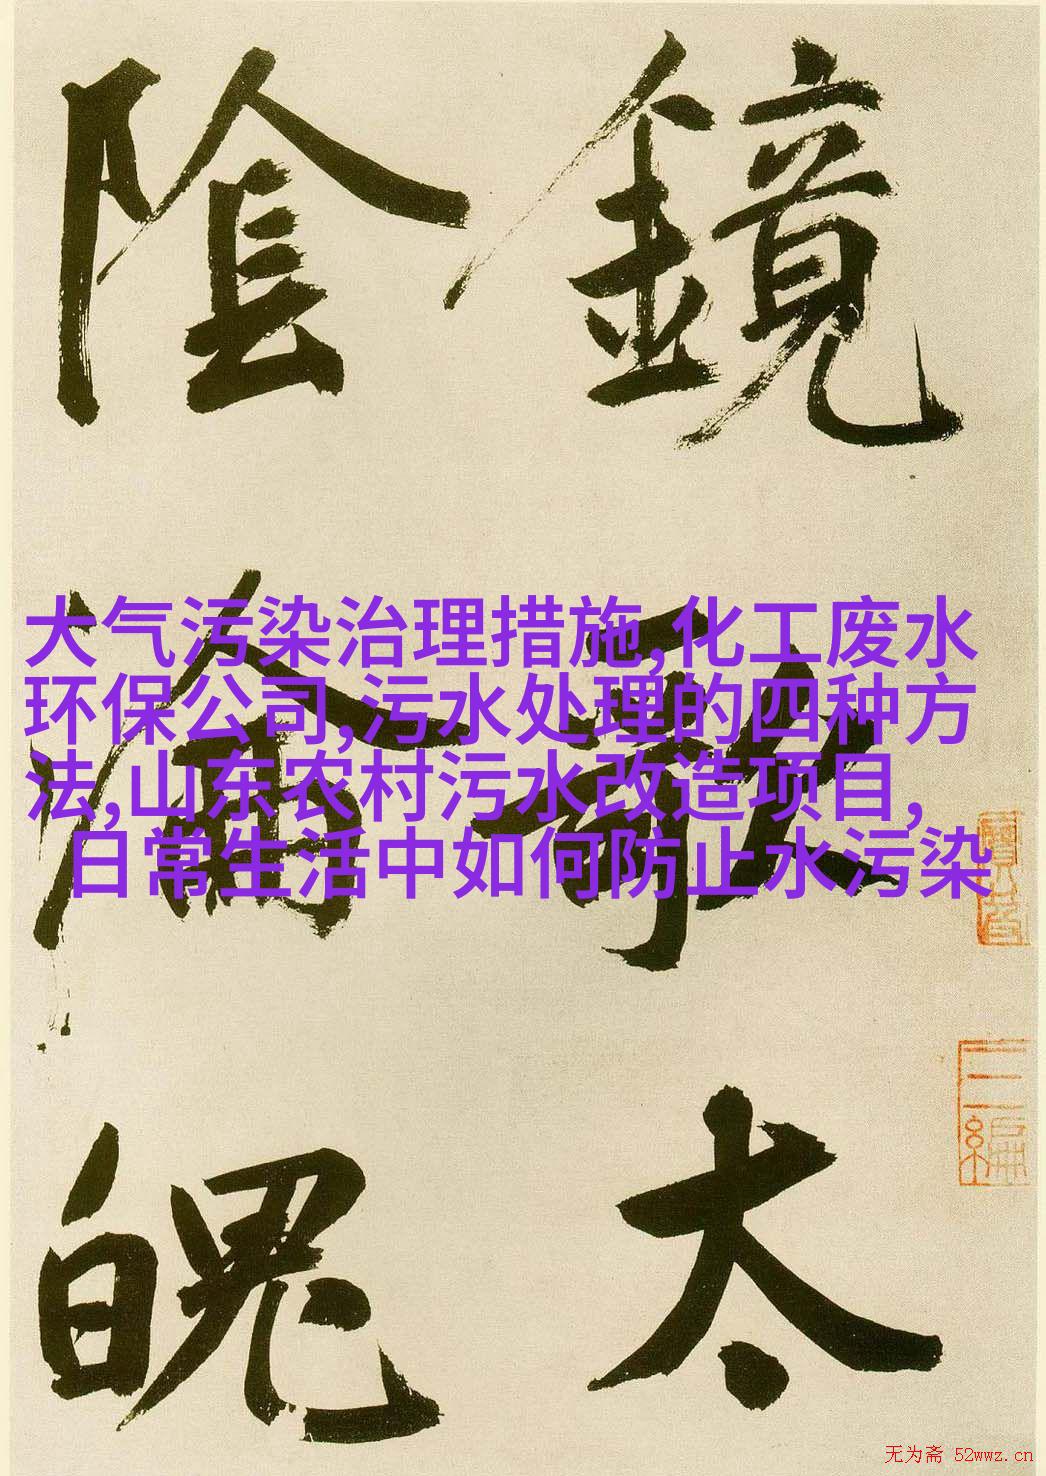 鏡
太
陰
淪
魄
大气污染治理措施,化工废水
环保公司,污水处理的四种方
法,山东农村污水改造项目,
日常生活中如何防止水污染
三編
无为斋 52wwz.cn